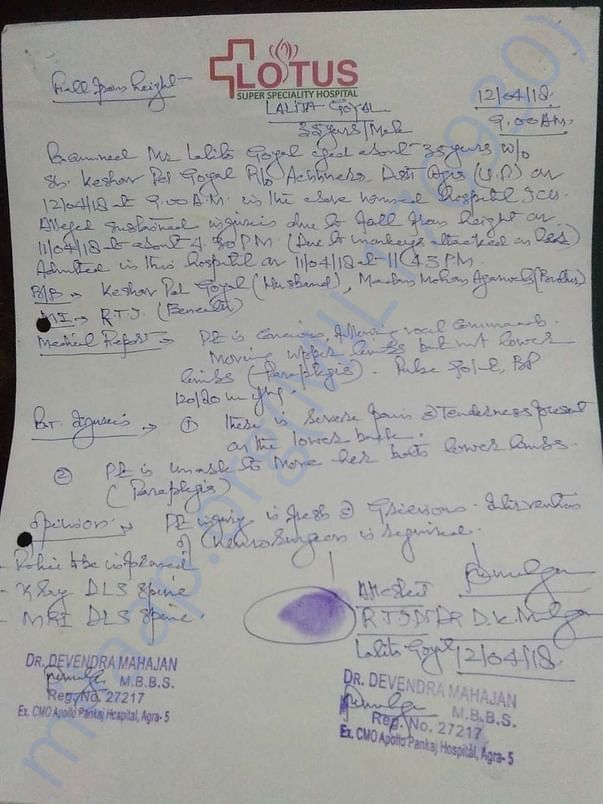 Fall from height
LOTUS
SUPER SPECIALITY HOSPITAL
LALITA GOYAL
35 years /
12/04/18
9.00 AM.
Examined Mrs Lalita Goyal aged about 35 years W/o
Sh. Keshav Goyal R/o Achhnera Distt Agra (U.P) on
12/04/18 at 9.00 A.M. in the above named hospital ICU.
Alleged sustained injuries due to fall from height on
11/04/18 at about 4.30 PM. (Due to monkeys attacked on her)
Admitted in this hospital on 11/04/18 at 11:45 PM.
B/B → Keshav Goyal (Husband), Madan Mohan Agarwal (Brother)
MI → R.T.I. (Beneath)
Medical Report → Pt is concious, following vocal commands.
Moving upper limbs but not lower
limbs (Paraplegia). Pulse BP
120/80 mmHg.
injuries → ① There is severe pain & Tenderness present
on the lower back.
② Pt is unable to move her both lower limbs.
(Paraplegia)
opinion → injury is fresh & Grievous. Intervention
of (Neuro Surgeon is required.
- Police to be informed
- X Ray DLS Spine
- MRI DLS Spine.
Attested
RTI DR D.K.
Lalita Goyal 12/04/18.
DR. DEVENDRA MAHAJAN
M.B.B.S.
Reg. No. 27217
Ex. CMO Apollo Pankaj Hospital, Agra- 5
DR. DEVENDRA MAHAJAN
M.B.B.S.
Reg. No. 27217
Ex. CMO Apollo Pankaj Hospital, Agra- 5